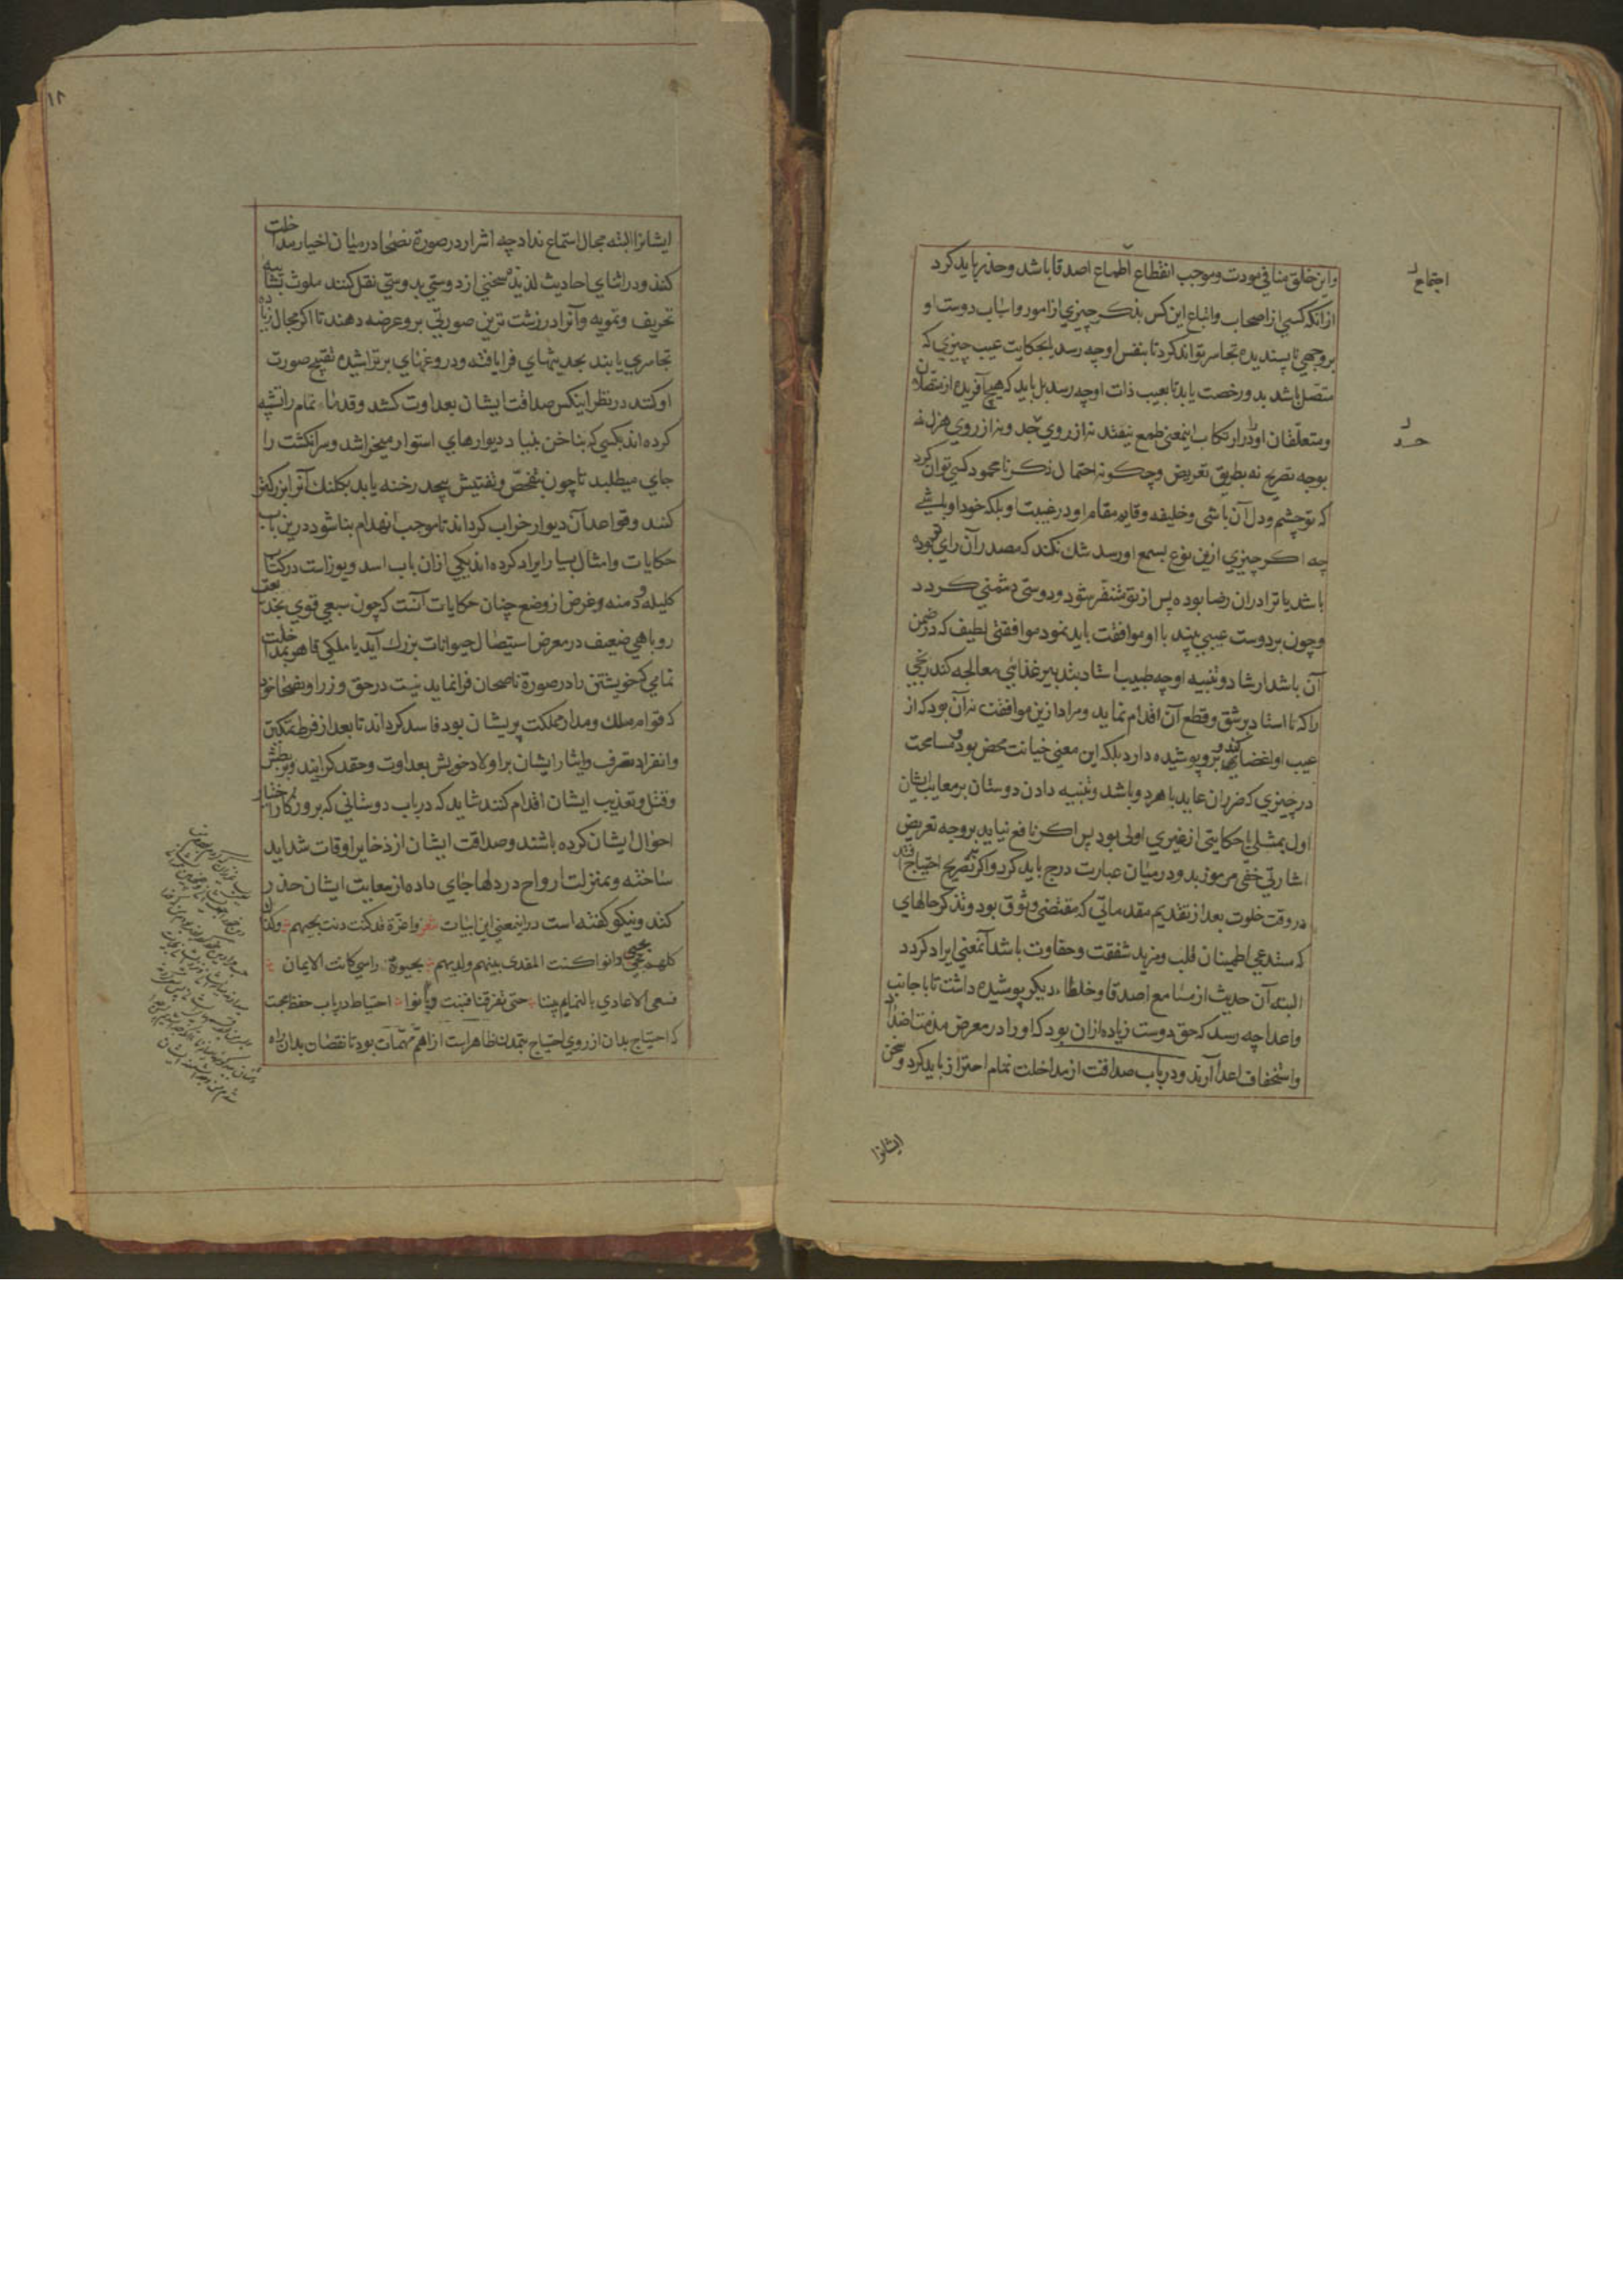 و این خلق منافی مودت و موجب انقطاع اطماع اصدقا باشد و حذر باید کرد
از آنکه کسی از اصحاب و اتباع این کس بذکر چیزی از امور و اسباب دوست او
بر وجهی ناپسندیده تجاسر تواند کرد تا بنفس او چه رسد یا بحکایت عیب چیزی که
متصل باشد بدو رخصت یابد تا بعیب ذات او چه رسد بل باید که هیچ آفریده از متصلان
و متعلقان او را در ارتکاب اینمعنی طمع نیفتد نه از روی جد و نه از روی هزل نه
بوجه تصریح نه بطریق تعریض و چکونه احتمال ذکر نا محمود کسی توان کرد
که تو چشم و دل آن باشی و خلیفه و قایم مقام او در غیبت او بلکه خود او باشی
چه اکر چیزی ازین نوع بسمع او رسد شک نکند که مصدر آن رای تو بوده
باشد یا ترا در ان رضا بوده پس از تو متنفر شود و دوستی دشمنی کردد
و چون بر دوست عیبی بیند با او موافقت باید نمود موافقتی لطیف که در ضمن
آن باشد ارشاد و تنبیه او چه طبیب استاد بتدبیر غذایی معالجه کند رنجی
را که نا استاد بر شق و قطع آن اقدام نماید و مراد ازین موافقت نه آن بود که از
عیب او اغضا کند و برو پوشیده دارد بلکه این معنی خیانت محض بود و مسامحت
در چیزی که ضرر ان عاید با هر دو باشد و تنبیه دادن دوستان بر معایب ایشان
اول بمثلی یا حکایتی از غیری اولی بود پس اکر نافع نیاید بر وجه تعریض
اشارتی خفی مرموز بدو در میان عبارت درج باید کرد و اکر بتصریح احتیاج افتد
در وقت خلوت بعد از تقدیم مقدماتی که مقتضی وثوق بود و تذکر حالهای
که مستدعی اطمینان قلب و مزید شفقت و حفاوت باشد آنمعنی ایراد کردد
البته آن حدیث از مسامع اصدقا و خلطاء دیکر پوشیده داشت تا با جانب
و اعدا چه رسد که حق دوست زیاده از ان بود که او را در معرض مذمت اضداد
و استخفاف اعدا آرند و در باب صداقت از مداخلت نمام احتراز باید کرد و سخن
ایشانرا
اجتماع
ایشانرا البته مجال استماع نداد چه اشرار در صورة نصحا در میان اخیار مداخلت
کنند و در اثنای احادیث لذیذه سخنی از دوستی بدوستی نقل کنند ملوث بشایبه
تحریف و تمویه و آنرا در زشت ترین صورتی برو عرضه دهند تا اکر مجال زیاده
تجاسری یابند بحدیثهای فرا یافته و دروغهای بر تراشیده تقبیح صورت
او کنند در نظر اینکس صداقت ایشان بعداوت کشد و قدماء نمام را تشبیه
کرده اند بکسی که بناخن بنیاد دیوارهای استوار میخراشد و سر انکشت را
جای میطلبد تا چون بتفحص و تفتیش بیحد رخنه یابد بکلنک آنرا بزرکتر
کنند و قواعد آن دیوار خراب کرداند تا موجب انهدام بنا شود درین باب
حکایات و امثال بسیار ایراد کرده اند یکی از ان باب اسد و یوز است در کتاب
کلیله و دمنه و غرض از وضع چنان حکایات آنست که چون سبعی قوی بخدیعت
روباهی ضعیف در معرض استیصال حیوانات بزرک آید یا ملکی قاهر بمداخلت
نمامی که خویشتن را در صورة ناصحان فرا نماید نیت در حق وزرا و نصحا خود
که قوام ملک و مدار مملکت بریشان بود فاسد کرداند تا بعد از فرط تمکین
و انفراد تصرف و ایثار ایشان بر اولاد خویش بعداوت و حقد کرایند و بر بطش
و قتل و تعذیب ایشان اقدام کنند شاید که در باب دوستانی که بروزکار اختبار
احوال ایشان کرده باشند و صداقت ایشان از ذخایر اوقات شداید
ساخته و بمنزلت ارواح در دلها جای داده از سعایت ایشان حذر
کند و نیکو کفته است در اینمعنی این ابیات شعر و اعزة قد کنت دنت بحبهم و کذا
کلهم بحبی دانوا کنت المفدی بینهم ولدیهم بحیوة راسی کانت الایمان
فسعی الاعادی بالنمایم بیننا حتی تفرقنا فبنت و بانوا احتیاط در باب حفظ محبت
که احتیاج بدان از روی احتیاج بتمدن ظاهر است از اهم مهمات بود تا نقصان بدان راه